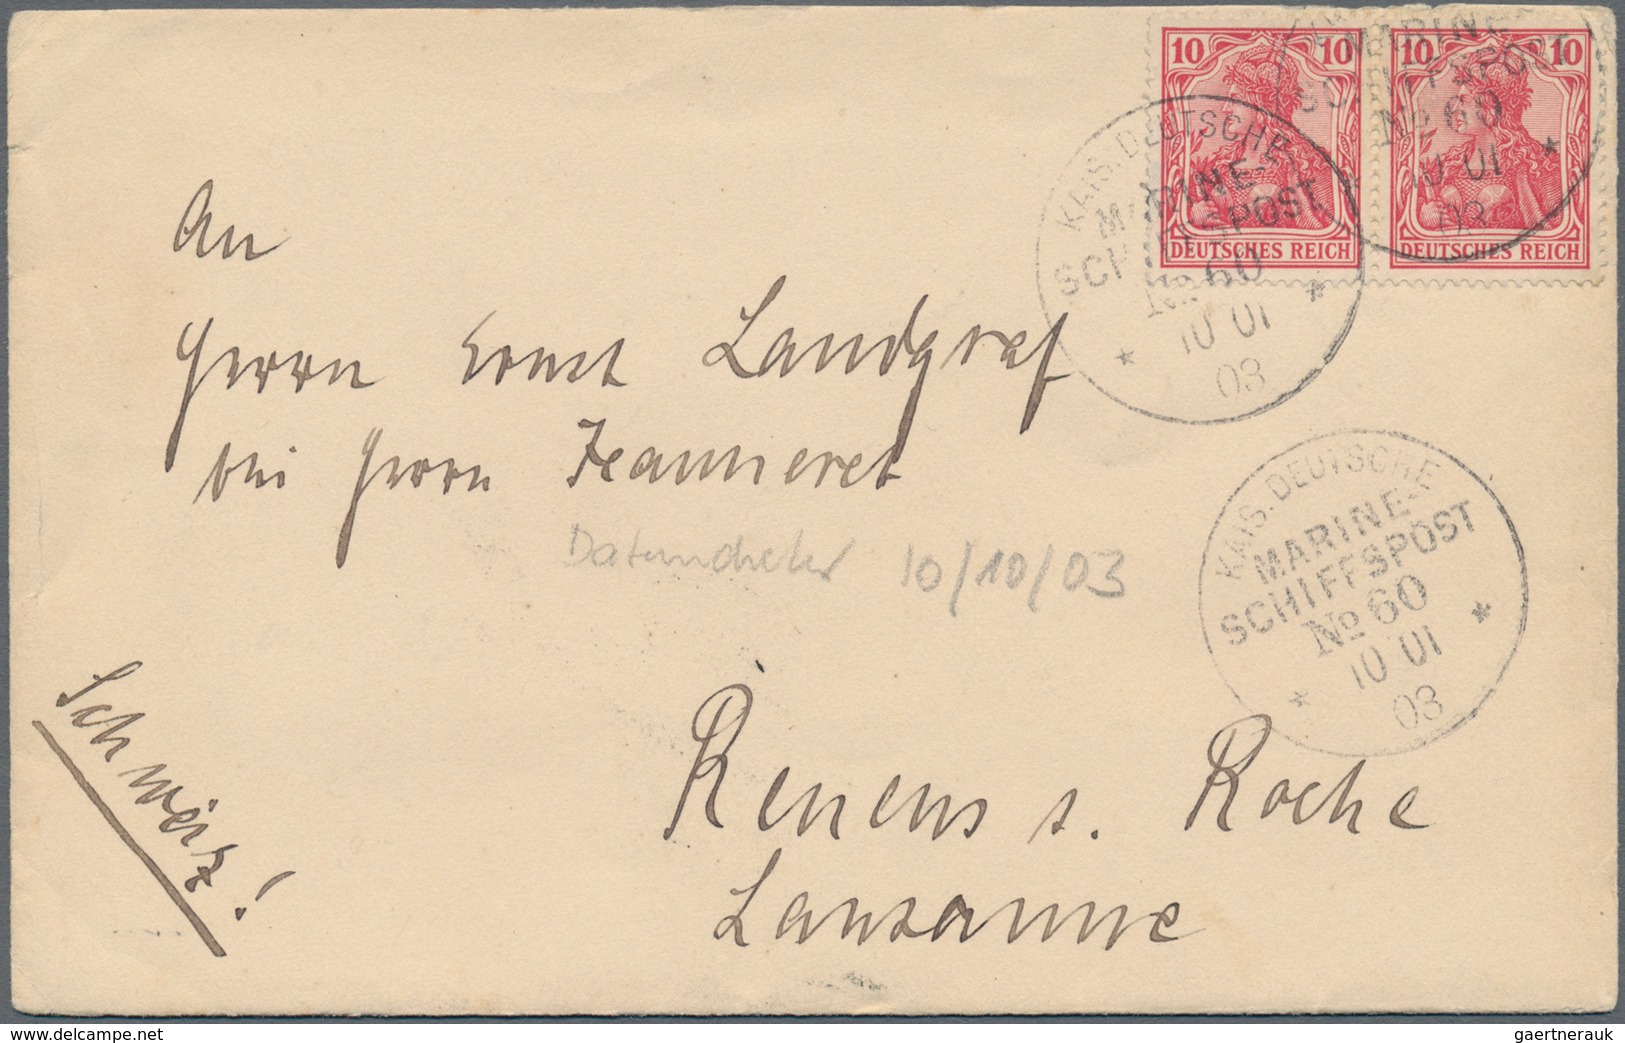 10 10
DEUTSCHES REICH
10 10
DEUTSCHES REICH
MARINE-
SCHIFFSPOST
No 60
10 01
03
KAIS. DEUTSCHE
MARINE-
SCHIFFSPOST
No 60
10 01
03
An
Herrn Ernst Landgraf
bei Herrn Jeanneret
10/10/03
KAIS. DEUTSCHE
MARINE-
SCHIFFSPOST
No 60
10 01
03
Schweiz!
Renens s. Roche
Lausanne
www.delcampe.net
gaertnerauk